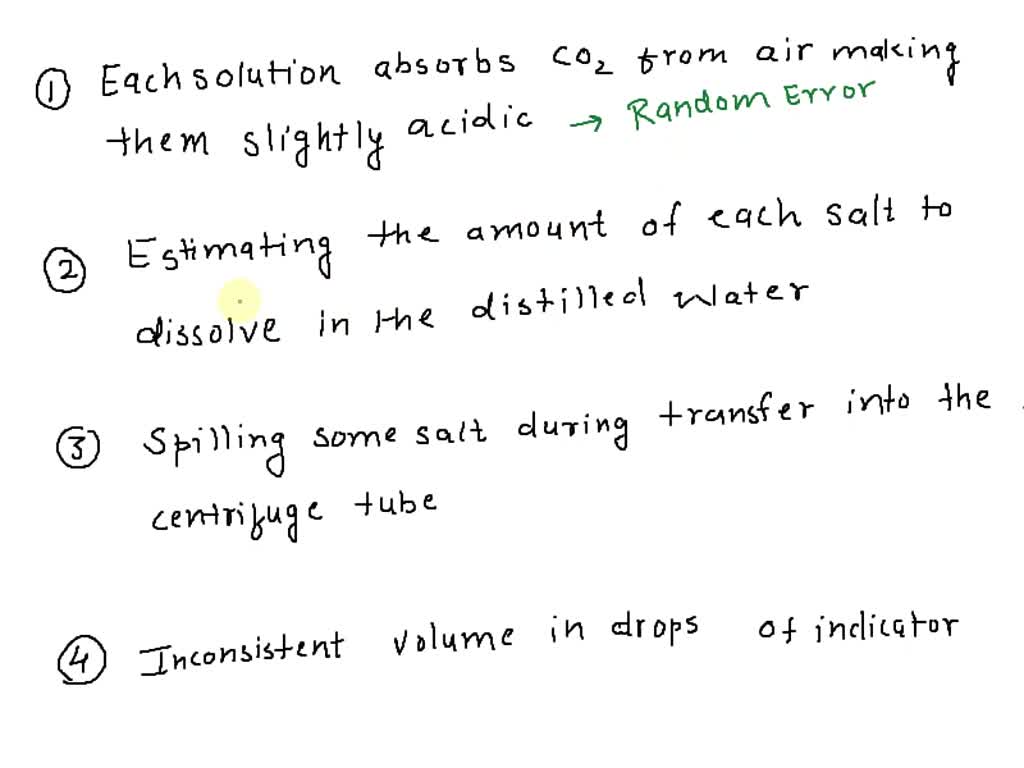 ① Each solution absorbs CO₂ from air making
them slightly acidic → Random Error
② Estimating the amount of each salt to
dissolve in the distilled water
③ Spilling some salt during transfer into the
centrifuge tube
④ Inconsistent volume in drops of indicator